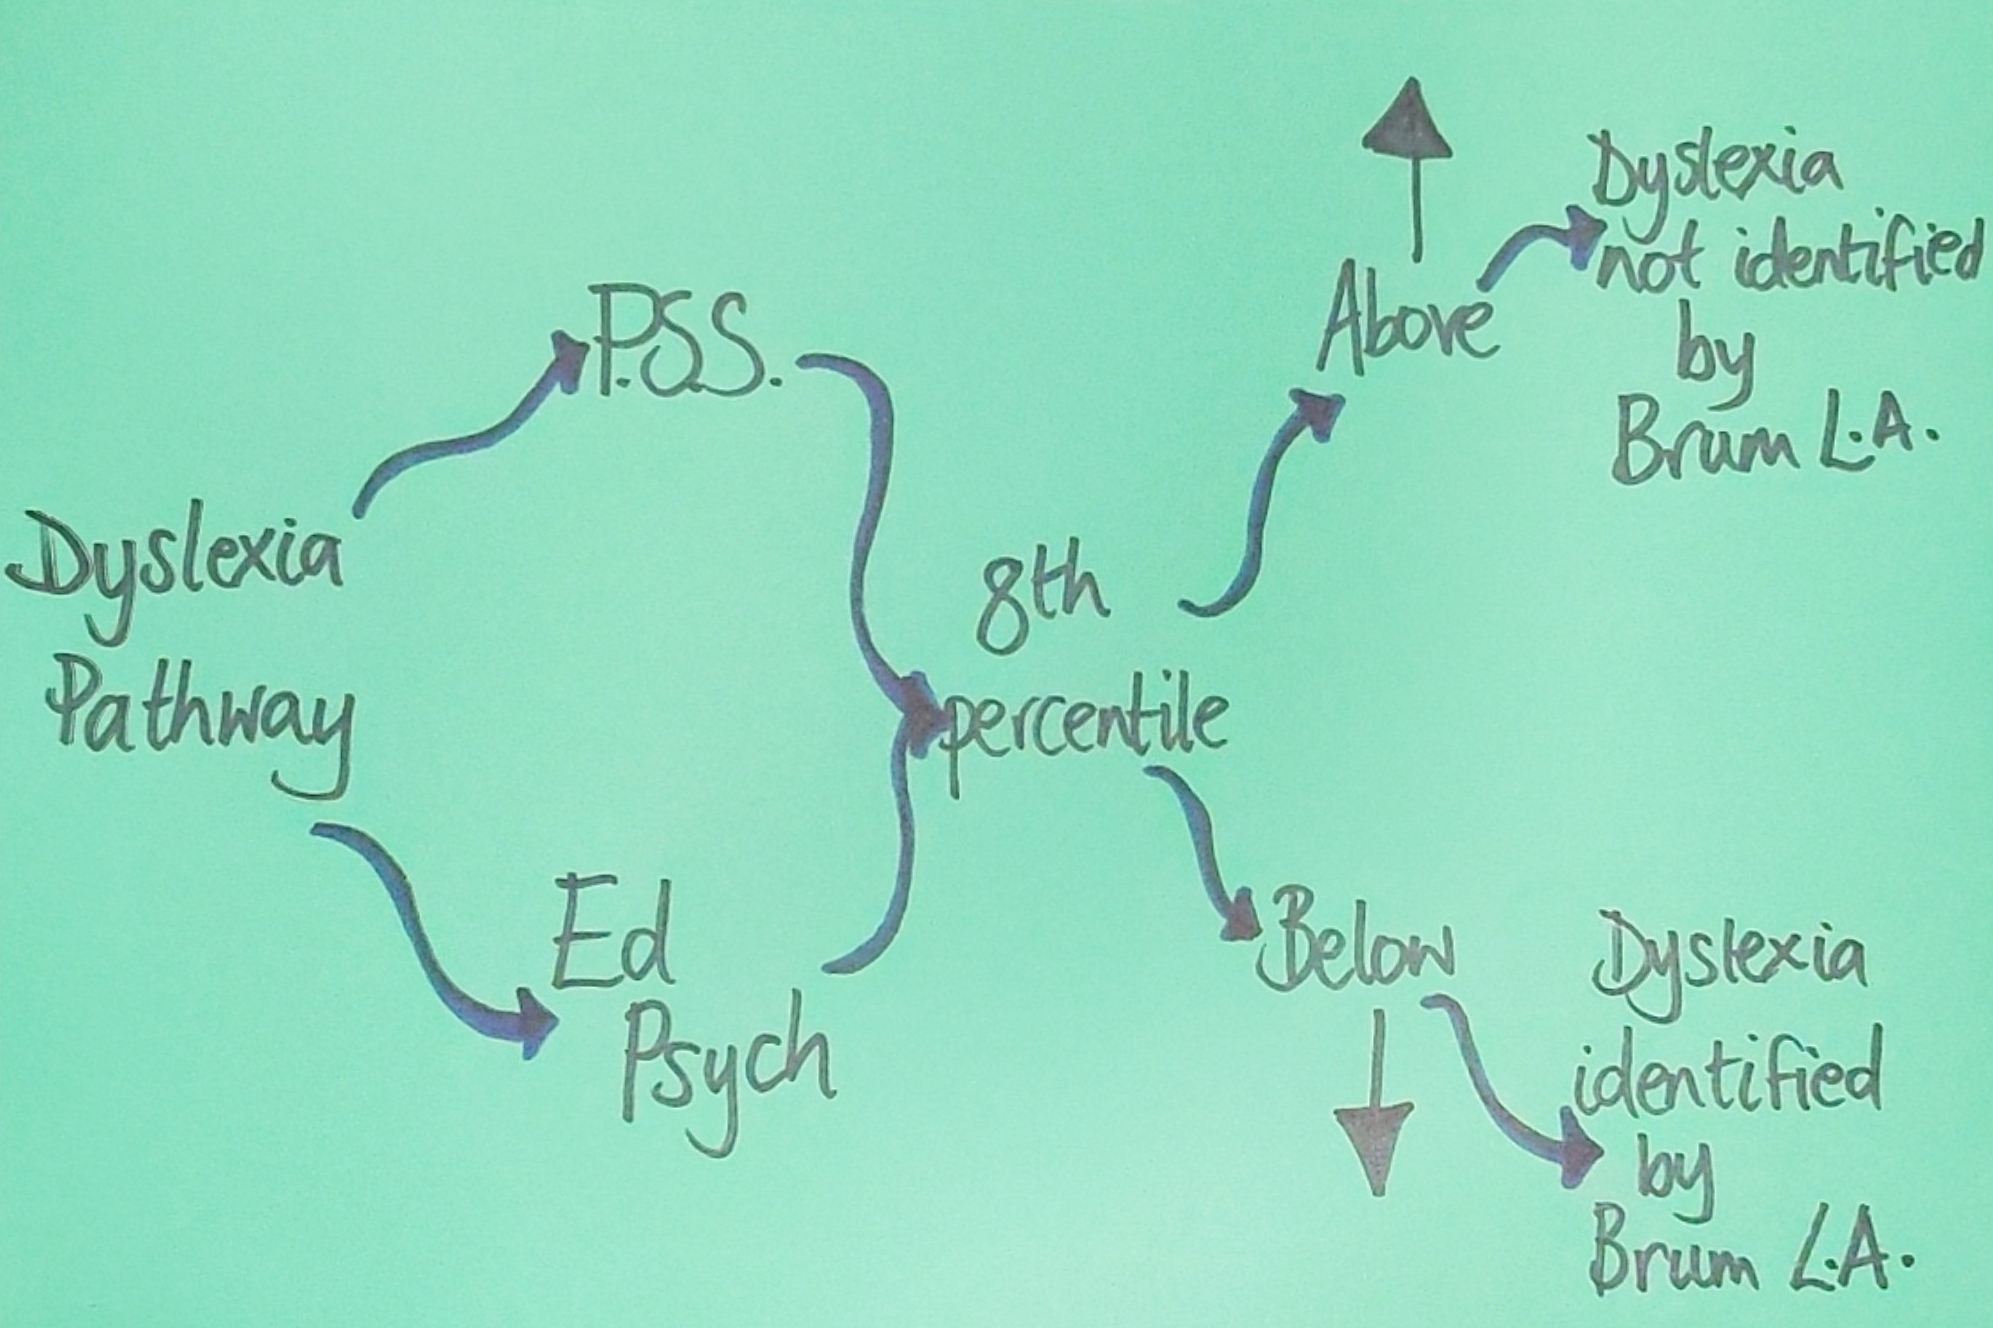 Dyslexia
Pathway
P.S.S.
Ed
Psych
8th
percentile
Above
Dyslexia
not identified
by
Brum L.A.
Below
Dyslexia
identified
by
Brum L.A.